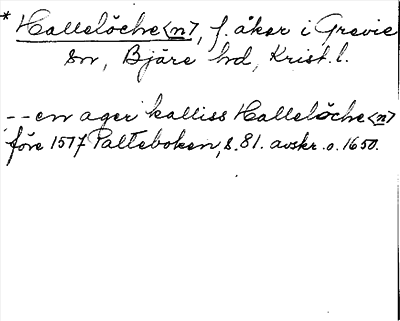 * Hallelöche<n>, f. åker i Grevie
sn, Bjäre hd, Krist. l.
-- en ager kalliss Hallelöche<n>
före 1517 Palteboken, s. 81. avskr. o. 1650.